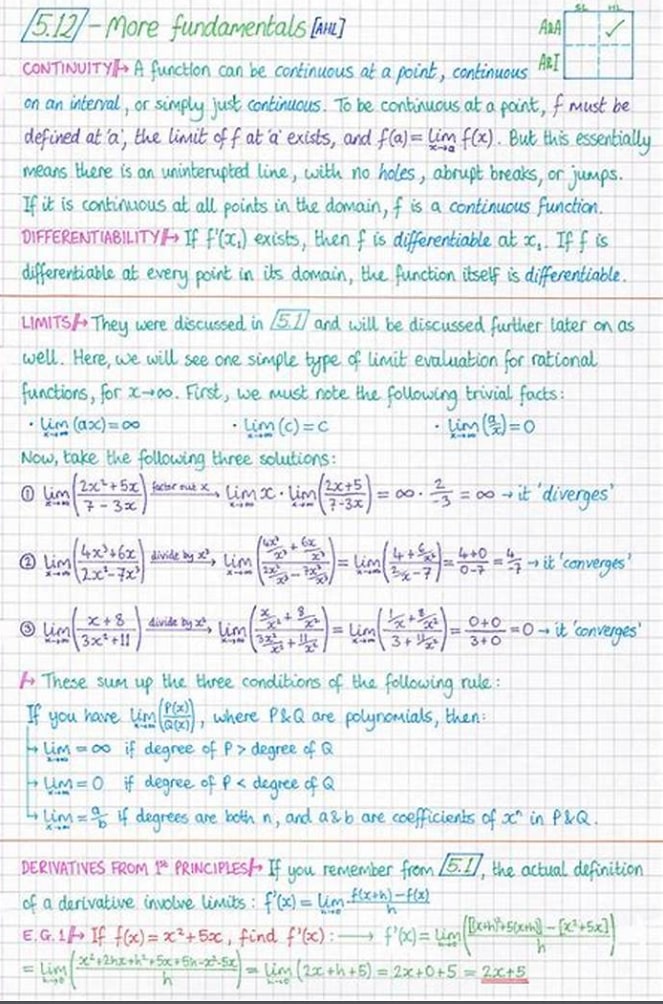 5.12 - More fundamentals [AHL]
SL HL
A&A ✓
A&I
CONTINUITY↦ A function can be continuous at a point, continuous
on an interval, or simply just continuous. To be continuous at a point, f must be
defined at 'a', the limit of f at 'a' exists, and f(a) = lim x→a f(x). But this essentially
means there is an uninterupted line, with no holes, abrupt breaks, or jumps.
If it is continuous at all points in the domain, f is a continuous function.
DIFFERENTIABILITY↦ If f'(x₁) exists, then f is differentiable at x₁. If f is
differentiable at every point in its domain, the function itself is differentiable.
LIMITS↦ They were discussed in 5.1 and will be discussed further later on as
well. Here, we will see one simple type of limit evaluation for rational
functions, for x→∞. First, we must note the following trivial facts:
· lim x→∞ (ax) = ∞ · lim x→∞ (c) = c · lim x→∞ (a/x) = 0
Now, take the following three solutions:
① lim x→∞ ((2x²+5x)/(7-3x)) factor out x → lim x→∞ x · lim x→∞ ((2x+5)/(7-3x)) = ∞ · 2/-3 = ∞ → it 'diverges'
② lim x→∞ ((4x³+6x)/(2x²-7x³)) divide by x³ → lim x→∞ ((4x³/x³ + 6x/x³)/(2x²/x³ - 7x³/x³)) = lim x→∞ ((4+6/x²)/(2/x-7)) = (4+0)/(0-7) = 4/-7 → it 'converges'
③ lim x→∞ ((x+8)/(3x²+11)) divide by x² → lim x→∞ ((x/x² + 8/x²)/(3x²/x² + 11/x²)) = lim x→∞ ((1/x + 8/x²)/(3+11/x²)) = (0+0)/(3+0) = 0 → it 'converges'
↦ These sum up the three conditions of the following rule:
If you have lim x→∞ (P(x)/Q(x)), where P&Q are polynomials, then:
↳ lim x→∞ = ∞ if degree of P > degree of Q
↳ lim x→∞ = 0 if degree of P < degree of Q
↳ lim x→∞ = a/b if degrees are both n, and a&b are coefficients of xⁿ in P&Q.
DERIVATIVES FROM 1ST PRINCIPLES↦ If you remember from 5.1, the actual definition
of a derivative involve limits: f'(x) = lim h→0 (f(x+h)-f(x))/h
E.G.1↦ If f(x) = x²+5x, find f'(x): → f'(x) = lim h→0 ([(x+h)²+5(x+h)] - [x²+5x])/h
= lim h→0 ((x²+2hx+h²+5x+5h-x²-5x)/h) = lim h→0 (2x+h+5) = 2x+0+5 = 2x+5